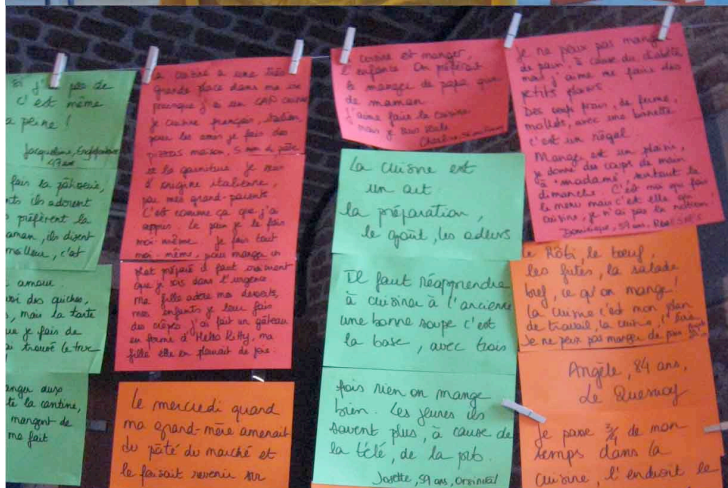 j'ai peu de
c'est même
a peine !
Jacqueline,
47 ans
fair sa pâtisserie,
ils adorent
préfèrent la
maman, ils disent
meilleure, c'est
amour
des quiches,
mais la tarte
que je fais de
ai trouvé le truc
manger aux
te la cantine,
mangent de
me fait
La cuisine a une très
grande place dans ma vie
puisque j'ai un CAP cuisine
je cuisine français, italien
pour les amis je fais des
pizzas maison, 5 mm de pâte
et la garniture je suis
d'origine italienne,
par mes grand-parents
C'est comme ça que j'ai
appris. Le pain je le fais
moi-même, je fais tout
moi-même, pour manger un
plat préparé il faut vraiment
que je sois dans l'urgence
Ma fille adore ma desserts,
mes enfants je leur fais
des crêpes j'ai fait un gâteau
en forme d'Hello Kitty, ma
fille elle en pleurait de joie.
Le mercredi quand
ma grand-mère amenait
du pâté du marché et
le faisait revenir sur
cuisine et manger,
enfants on préférait
le manger de papa que
de maman.
J'aime faire la cuisine
mais je suis seule
La cuisine est
un art
la préparation,
le goût, les odeurs
Il faut réapprendre
à cuisiner à l'ancienne
une bonne soupe c'est
la base, avec trois
fois rien on mange
bien. Les jeunes ils
savent plus, à cause de
la télé, de la pub.
Josette, 59 ans,
Je ne peux pas manger
de pain, à cause du diabète
mais j'aime me faire des
petits plaisirs
Des oeufs frais, de ferme,
mollets, avec une noisette
c'est un régal
Manger est un plaisir,
je donne des coups de main
à "madame", surtout le
dimanche. C'est moi qui fais
le menu mais c'est elle qui
cuisine, je n'ai pas la notion
Dominique, 59 ans,
Le Rôti, le boeuf,
les frites, la salade
bref, ce qu'on mange !
La cuisine c'est mon plan
de travail, la cuisine,
Je ne peux pas manger de pain
Angèle, 84 ans,
Le Quesnoy
Je passe 3/4 de mon
temps dans la
cuisine, l'endroit le